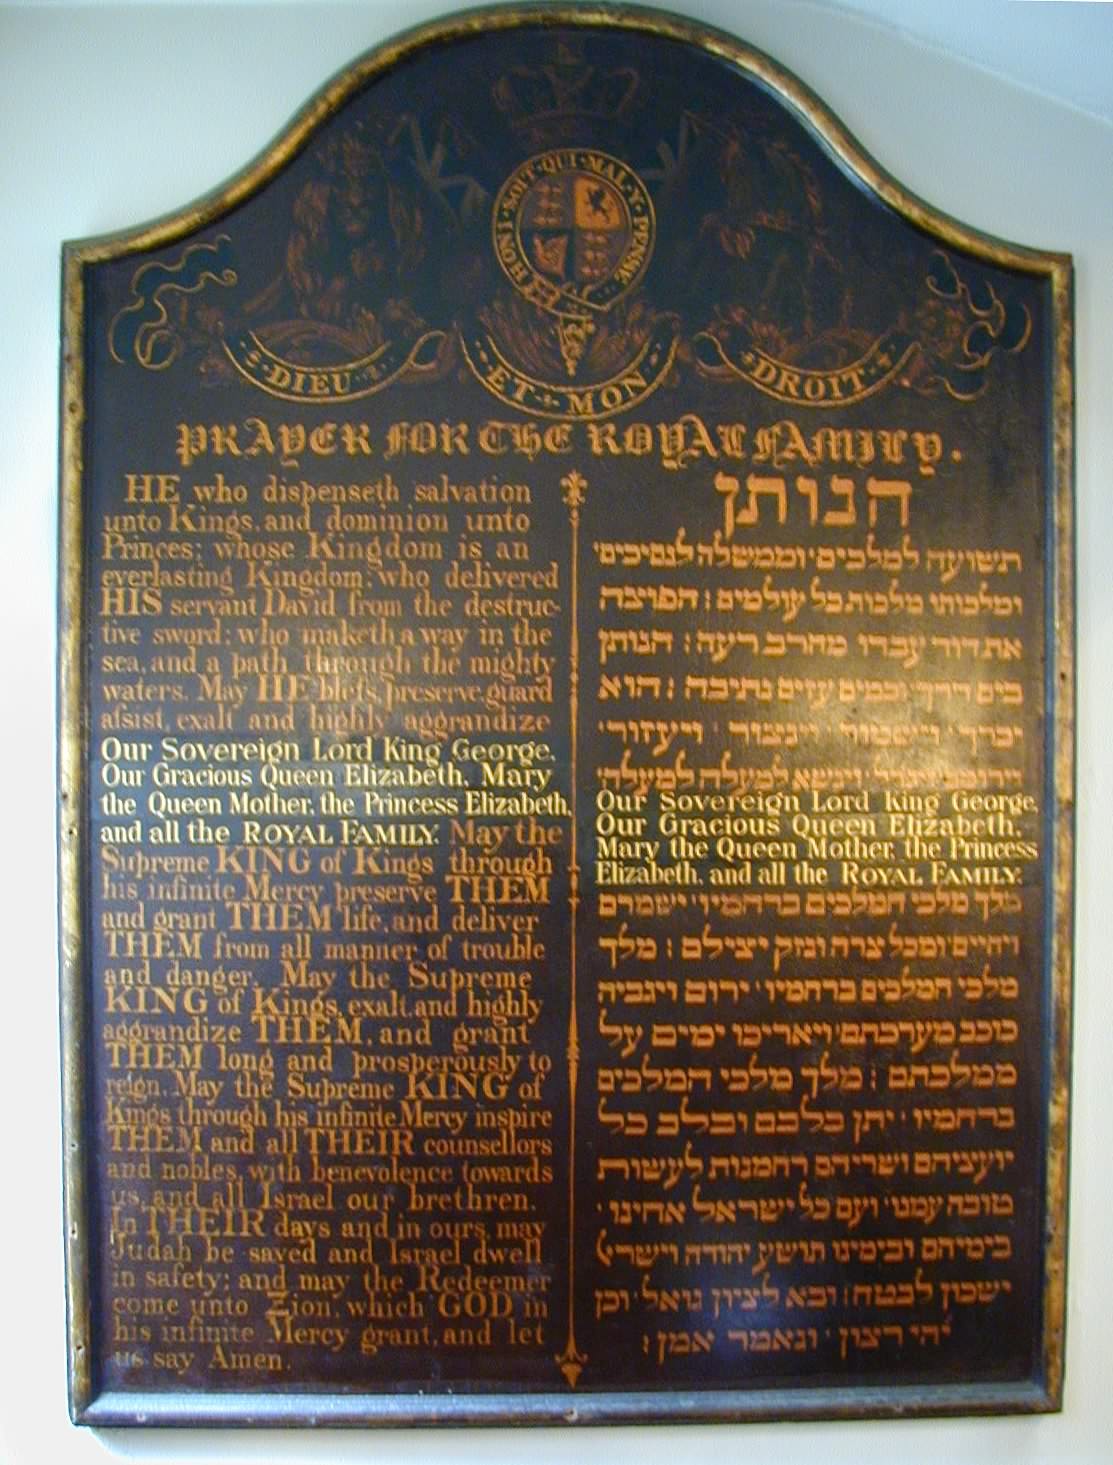 HONI·SOIT·QUI·MAL·Y·PENSE
DIEU
ET MON
DROIT
PRAYER FOR THE ROYAL FAMILY.
HE who dispenseth salvation
unto Kings, and dominion unto
Princes; whose Kingdom is an
everlasting Kingdom; who delivered
HIS servant David from the destruc-
tive sword; who maketh a way in the
sea, and a path through the mighty
waters. May HE blefs, preserve, guard
afsist, exalt and highly aggrandize
Our Sovereign Lord King George,
Our Gracious Queen Elizabeth, Mary
the Queen Mother, the Princess Elizabeth,
and all the ROYAL FAMILY. May the
Supreme KING of Kings through
his infinite Mercy preserve THEM
and grant THEM life, and deliver
THEM from all manner of trouble
and danger. May the Supreme
KING of Kings, exalt and highly
aggrandize THEM, and grant
THEM long and prosperously to
reign. May the Supreme KING of
Kings through his infinite Mercy inspire
THEM and all THEIR counsellors
and nobles, with benevolence towards
us, and all Israel our brethren.
In THEIR days and in ours, may
Judah be saved and Israel dwell
in safety; and may the Redeemer
come unto Zion, which GOD in
his infinite Mercy grant, and let
us say Amen.
הנותן
תשועה למלכים וממשלה לנסיכים
ומלכותו מלכות כל עולמים: הפוצה
את דוד עבדו מחרב רעה: הנותן
בים דרך ובמים עזים נתיבה: הוא
יברך וישמור וינצור ויעזור
וינשא למעלה למעלה
Our Sovereign Lord King George,
Our Gracious Queen Elizabeth,
Mary the Queen Mother, the Princess
Elizabeth, and all the ROYAL FAMILY.
מלך מלכי המלכים ברחמיו ישמרם
ויחיים ומכל צרה ונזק יצילם: מלך
מלכי המלכים ברחמיו ירום ויגביה
כוכב מערכתם ויאריכו ימים על
ממלכתם: מלך מלכי המלכים
ברחמיו יתן בלבם ובלב כל
יועציהם ושריהם רחמנות לעשות
טובה עמנו ועם כל ישראל אחינו
בימיהם ובימינו תושע יהודה וישראל
ישכון לבטח: ובא לציון גואל וכן
יהי רצון ונאמר אמן: